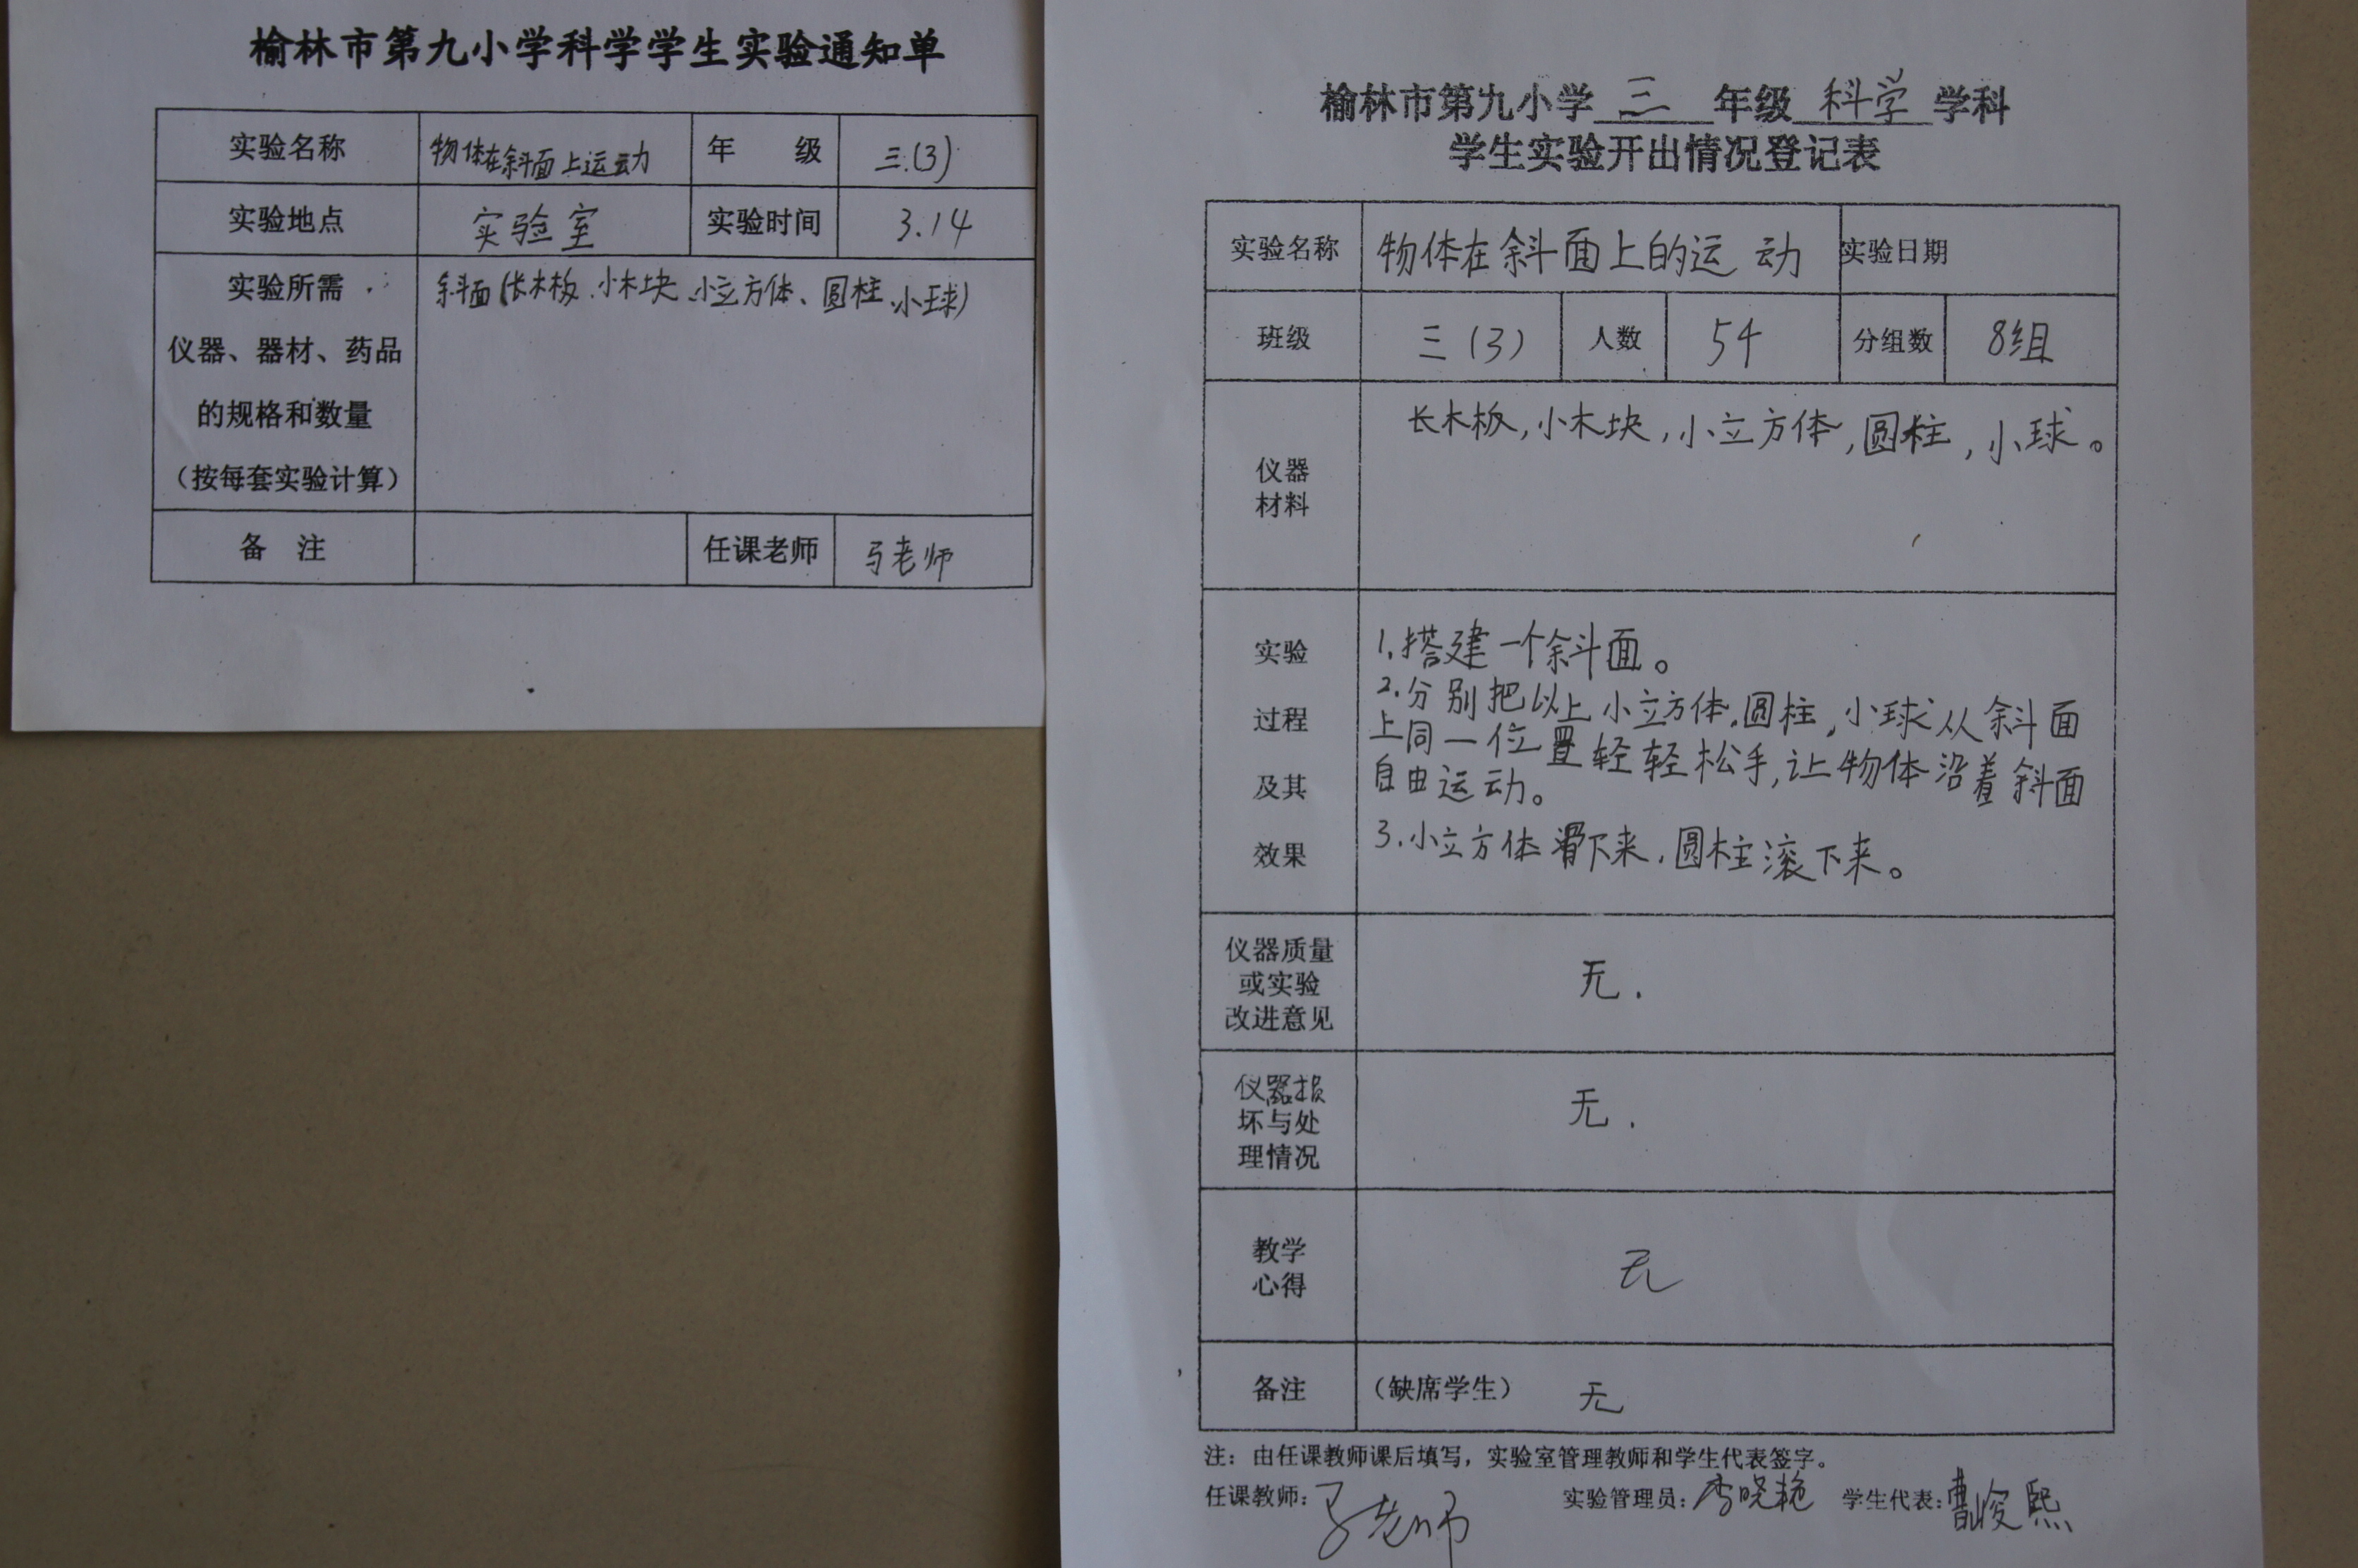 榆林市第九小学科学学生实验通知单
实验名称 物体在斜面上运动 年 级 三.(3)
实验地点 实验室 实验时间 3.14
实验所需 斜面(长木板、小木块、小立方体、圆柱、小球)
仪器、器材、药品
的规格和数量
(按每套实验计算)
备 注 任课老师 马老师
榆林市第九小学 三 年级 科学 学科
学生实验开出情况登记表
实验名称 物体在斜面上的运动 实验日期
班级 三(3) 人数 54 分组数 8组
长木板,小木块,小立方体,圆柱,小球。
仪器
材料
实验 1.搭建一个斜面。
2.分别把以上小立方体,圆柱,小球从斜面
过程 上同一位置轻轻松手,让物体沿着斜面
及其 自由运动。
效果 3.小立方体滑下来,圆柱滚下来。
仪器质量
或实验 无.
改进意见
仪器损
坏与处 无.
理情况
教学 无
心得
备注 (缺席学生) 无
注:由任课教师课后填写,实验室管理教师和学生代表签字。
任课教师:马老师 实验管理员:李晓艳 学生代表:曹峻熙